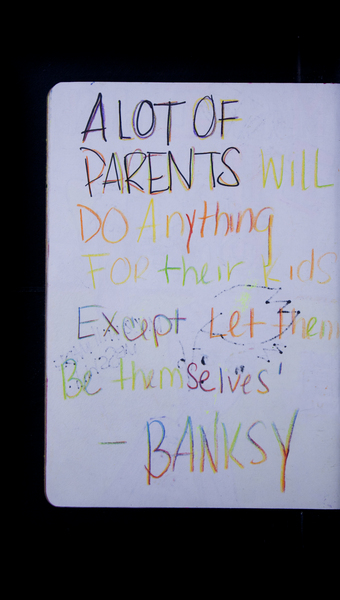 A LOT OF
PARENTS WILL
DO Anything
FOR their kids
Except Let them
Be themselves'
— BANKSY